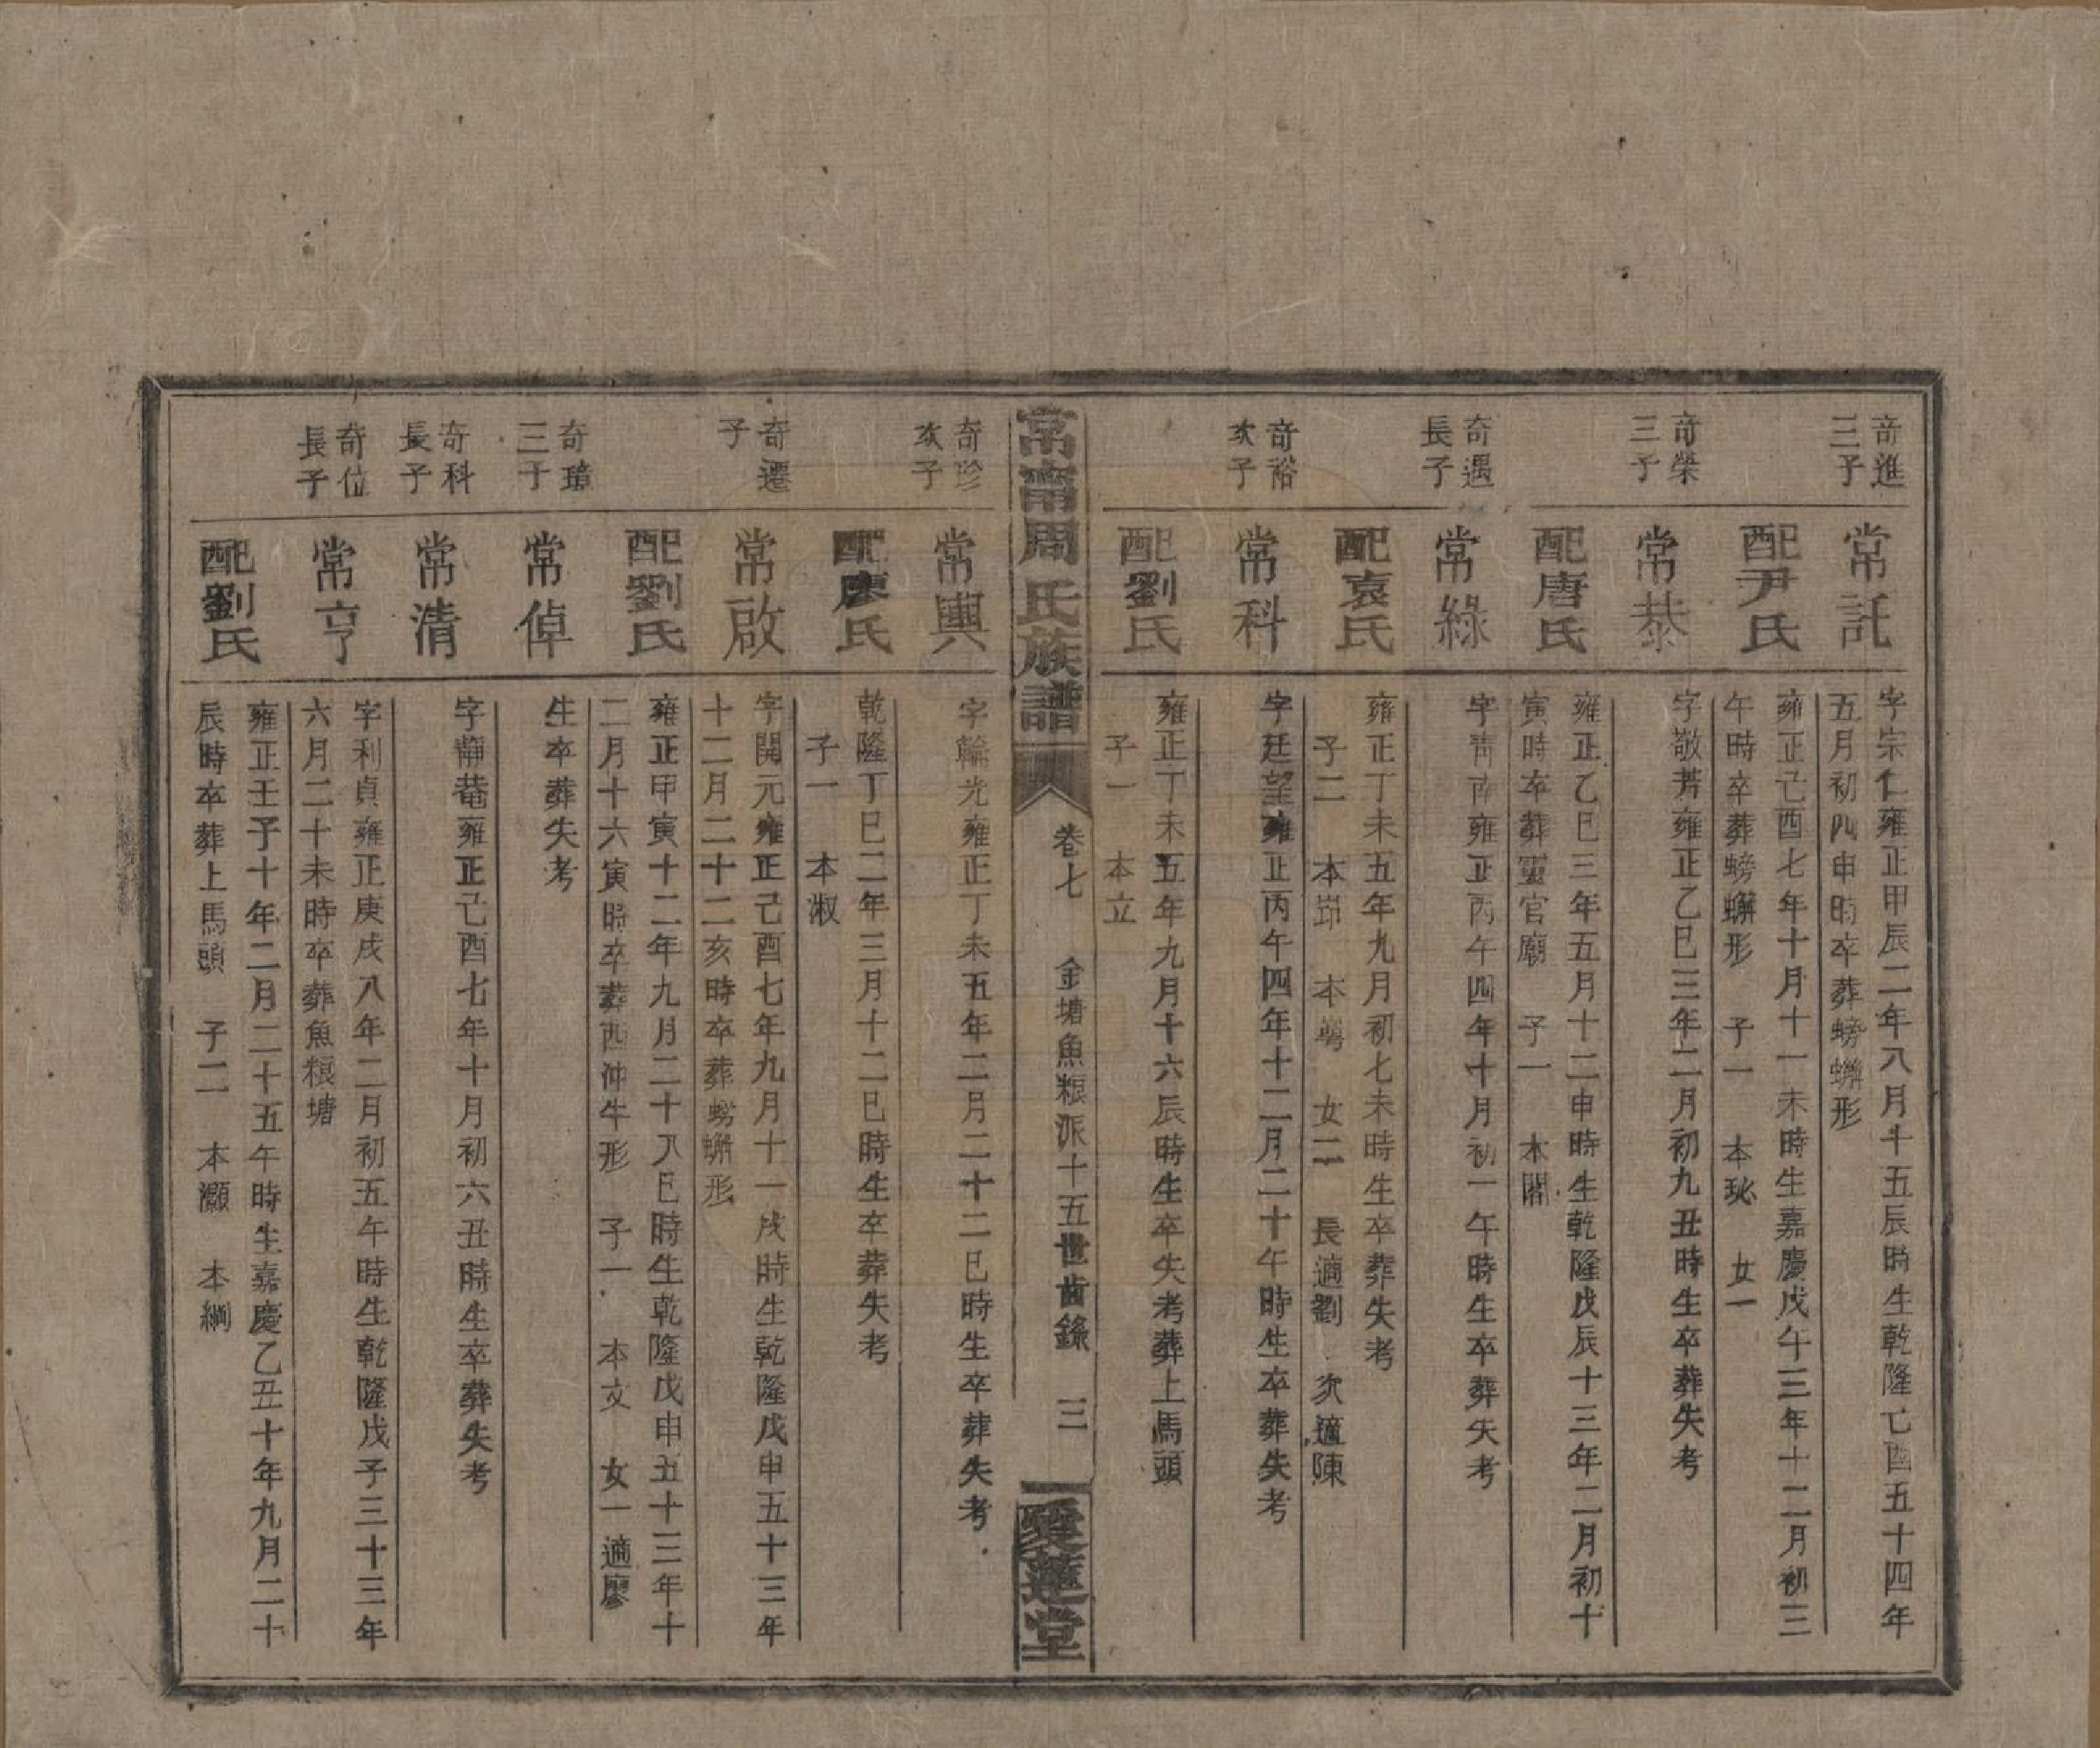 奇進
三子
常託
字宗仁雍正甲辰二年八月十五辰時生乾隆己酉五十四年
五月初四申時卒葬螃蠏形
配尹氏
雍正己酉七年十月十一未時生嘉慶戊午三年十二月初三
午時卒葬螃蠏形 子一 本珌 女一
奇榮
三子
常恭
字敬芳雍正乙巳三年二月初九丑時生卒葬失考
配唐氏
雍正乙巳三年五月十二申時生乾隆戊辰十三年二月初十
寅時卒葬靈官廟 子一 本閣
奇遇
長子
常綠
字青南雍正丙午四年十月初一午時生卒葬失考
配袁氏
雍正丁未五年九月初七未時生卒葬失考
子二 本茆 本蕚 女二 長適劉 次適陳
奇裕
次子
常科
字廷望雍正丙午四年十二月二十午時生卒葬失考
配劉氏
雍正丁未五年九月十六辰時生卒失考葬上馬頭
子一 本立
常甯周氏族譜
卷七 金塘魚粮派十五世齒錄 三
愛蓮堂
奇珍
次子
常輿
字輪光雍正丁未五年二月二十二巳時生卒葬失考
配廖氏
乾隆丁巳二年三月十二巳時生卒葬失考
子一 本淑
奇遷
子
常啟
字開元雍正己酉七年九月十一戌時生乾隆戊申五十三年
十二月二十二亥時卒葬螃蠏形
配劉氏
雍正甲寅十二年九月二十八巳時生乾隆戊申五十三年十
二月十六寅時卒葬西冲牛形 子一 本文 女一適廖
奇璋
三子
常倬
生卒葬失考
奇科
長子
常清
字靜菴雍正己酉七年十月初六丑時生卒葬失考
奇位
長子
常亨
字利貞雍正庚戌八年二月初五午時生乾隆戊子三十三年
六月二十未時卒葬魚粮塘
配劉氏
雍正壬子十年二月二十五午時生嘉慶乙丑十年九月二十
辰時卒葬上馬頭 子二 本灝 本綱